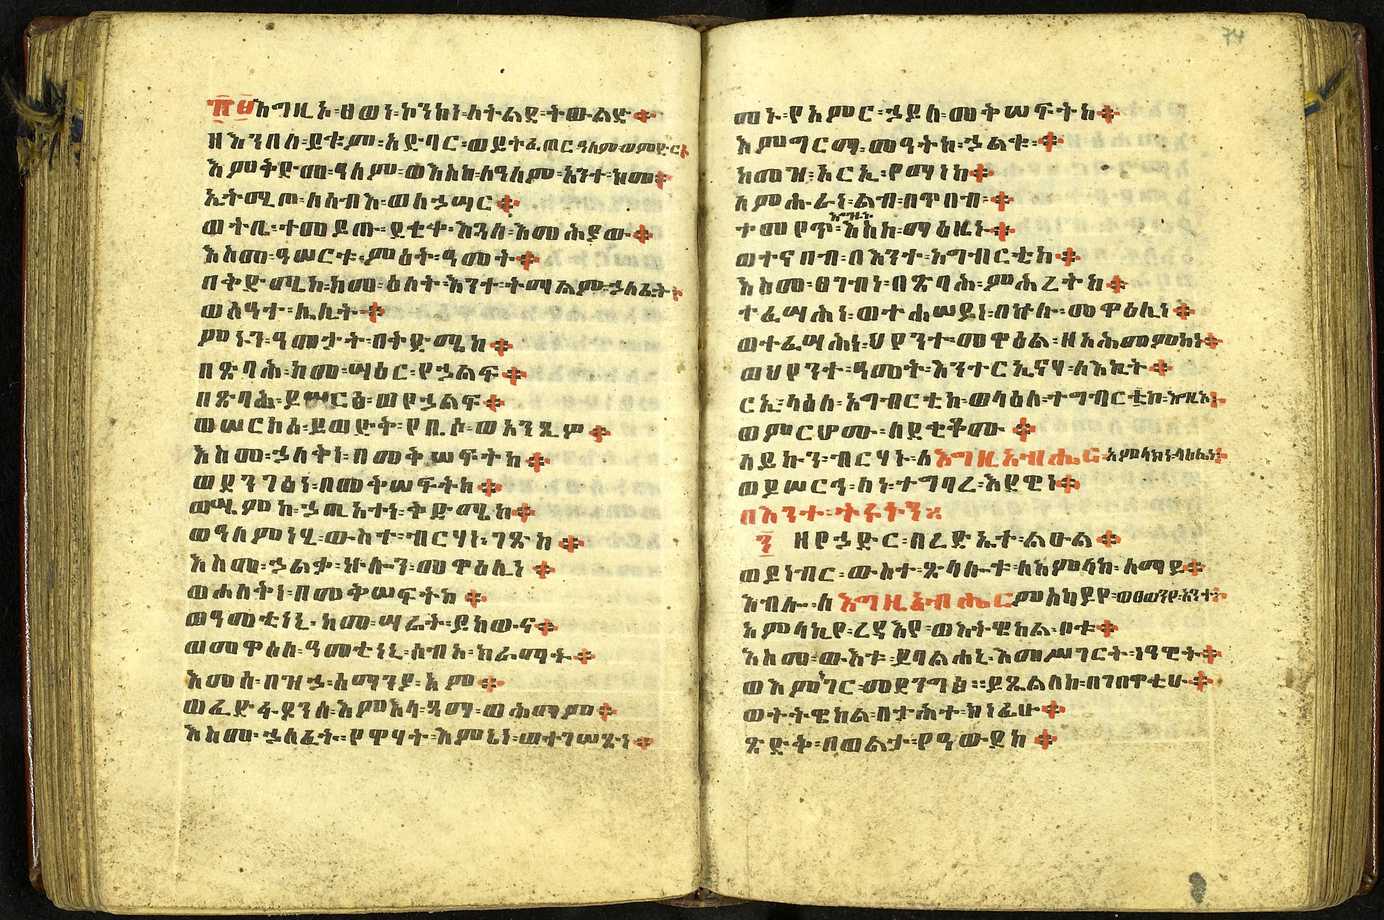 ፹፱እግዚኦ፡ፀወነ፡ኮንከነ፡ለትልደ፡ትውልድ፨
ዘእንበለ፡ይቁም፡አድባር፡ወይትፈጠር፡ዓለም፡ወምድር፨
እምቅድመ፡ዓለም፡ወእስከ፡ለዓለም፡አንተ፡ክመ፨
ኢትሚጦ፡ለሰብእ፡ወለኃሣር፨
ወትቤ፡ተመየጡ፡ደቂቀ፡እጓለ፡እመሕያው፨
እስመ፡ዓሠርቱ፡ምዕት፡ዓመት፨
በቅድሜከ፡ከመ፡ዕለት፡እንተ፡ትማልም፡ኃለፈት፨
ወሰዓተ፡ሌሊት፨
ምኑን፡ዓመታት፡በቅድሜከ፨
በጽባሕ፡ከመ፡ሣዕር፡የኃልፍ፨
በጽባሕ፡ይሠርፅ፡ወየኃልፍ፨
ወሠርከሰ፡ይወድቅ፡የቢሶ፡ወአንጺዎ፨
እስመ፡ኃለቅነ፡በመቅሠፍትከ፨
ወደንገፅነ፡በመቅሠፍትከ፨
ወሤምከ፡ኃጢአተነ፡ቅድሜከ፨
ወዓለምነሂ፡ውስተ፡ብርሃነ፡ገጽከ፨
እስመ፡ኃልቃ፡ኵሎን፡መዋዕሊነ፨
ወሐለቅነ፡በመቅሠፍትከ፨
ወዓመቲነኒ፡ከመ፡ሣሬት፡ይከውና፨
ወመዋዕለ፡ዓመቲነኒ፡ሰብአ፡ክራማት፨
እመሰ፡በዝኃ፡ሰማንያ፡አም፨
ወፈድፋደንሰ፡እምእላ፡ጻማ፡ወሕማም፨
እስመ፡ኃለፈት፡የዋሃት፡እምኔነ፡ወተገሠጽነ፨
74
መኑ፡የአምር፡ኃይለ፡መቅሠፍትከ፨
እምግርማ፡መዓትከ፡ኃልቁ፨
ከመዝ፡አርኢ፡የማነከ፨
እምሑራነ፡ልብ፡በጥበብ፨
ተመየጥ፡እግዚኦ፡እስከ፡ማዕዜኑ፨
ወተናበብ፡በእንተ፡አግብርቲከ፨
እስመ፡ፀገብነ፡በጽባሕ፡ምሕረትከ፨
ተፈሣሕነ፡ወተሐሠይነ፡በኵሉ፡መዋዕሊነ፨
ወተፈሣሕነ፡ህየንተ፡መዋዕል፡ዘአሕመምከነ፨
ወህየንተ፡ዓመት፡እንተ፡ርኢናሃ፡ለእኪት፨
ርኢ፡ላዕለ፡አግብርቲከ፡ወላዕለ፡ተግባርቲከ፡እግዚኦ፨
ወምርሆሙ፡ለደቂቆሙ፨
ለይኩን፡ብርሃኑ፡ለእግዚአብሔር፡አምላክነ፡ላዕሌነ፨
ወይሠርዓ፡ለነ፡ተግባረ፡እደዊነ፨
በእንተ፡ትሩፋን፨
፺ ዘየኃድር፡በረድኤተ፡ልዑል፨
ወይነብር፡ውስተ፡ጽላሎተ፡ለአምላክ፡ሰማይ፨
ይብሎ፡ለእግዚአብሔር፡ምስካይየ፡ወፀወንየ፡አንተ፨
አምላኪየ፡ረዳእየ፡ወእትዌከል፡ቦቱ፨
እስመ፡ውእቱ፡ይባልሐኒ፡እመሥገርት፡ነዓዊት፨
ወእምነገር፡መደንግፅ፡፡ይጼልለከ፡በገበዋቲሁ፨
ወትትዌከል፡በታሕተ፡ክነፊሁ፨
ጽድቅ፡በወልታ፡የዓውደከ፨